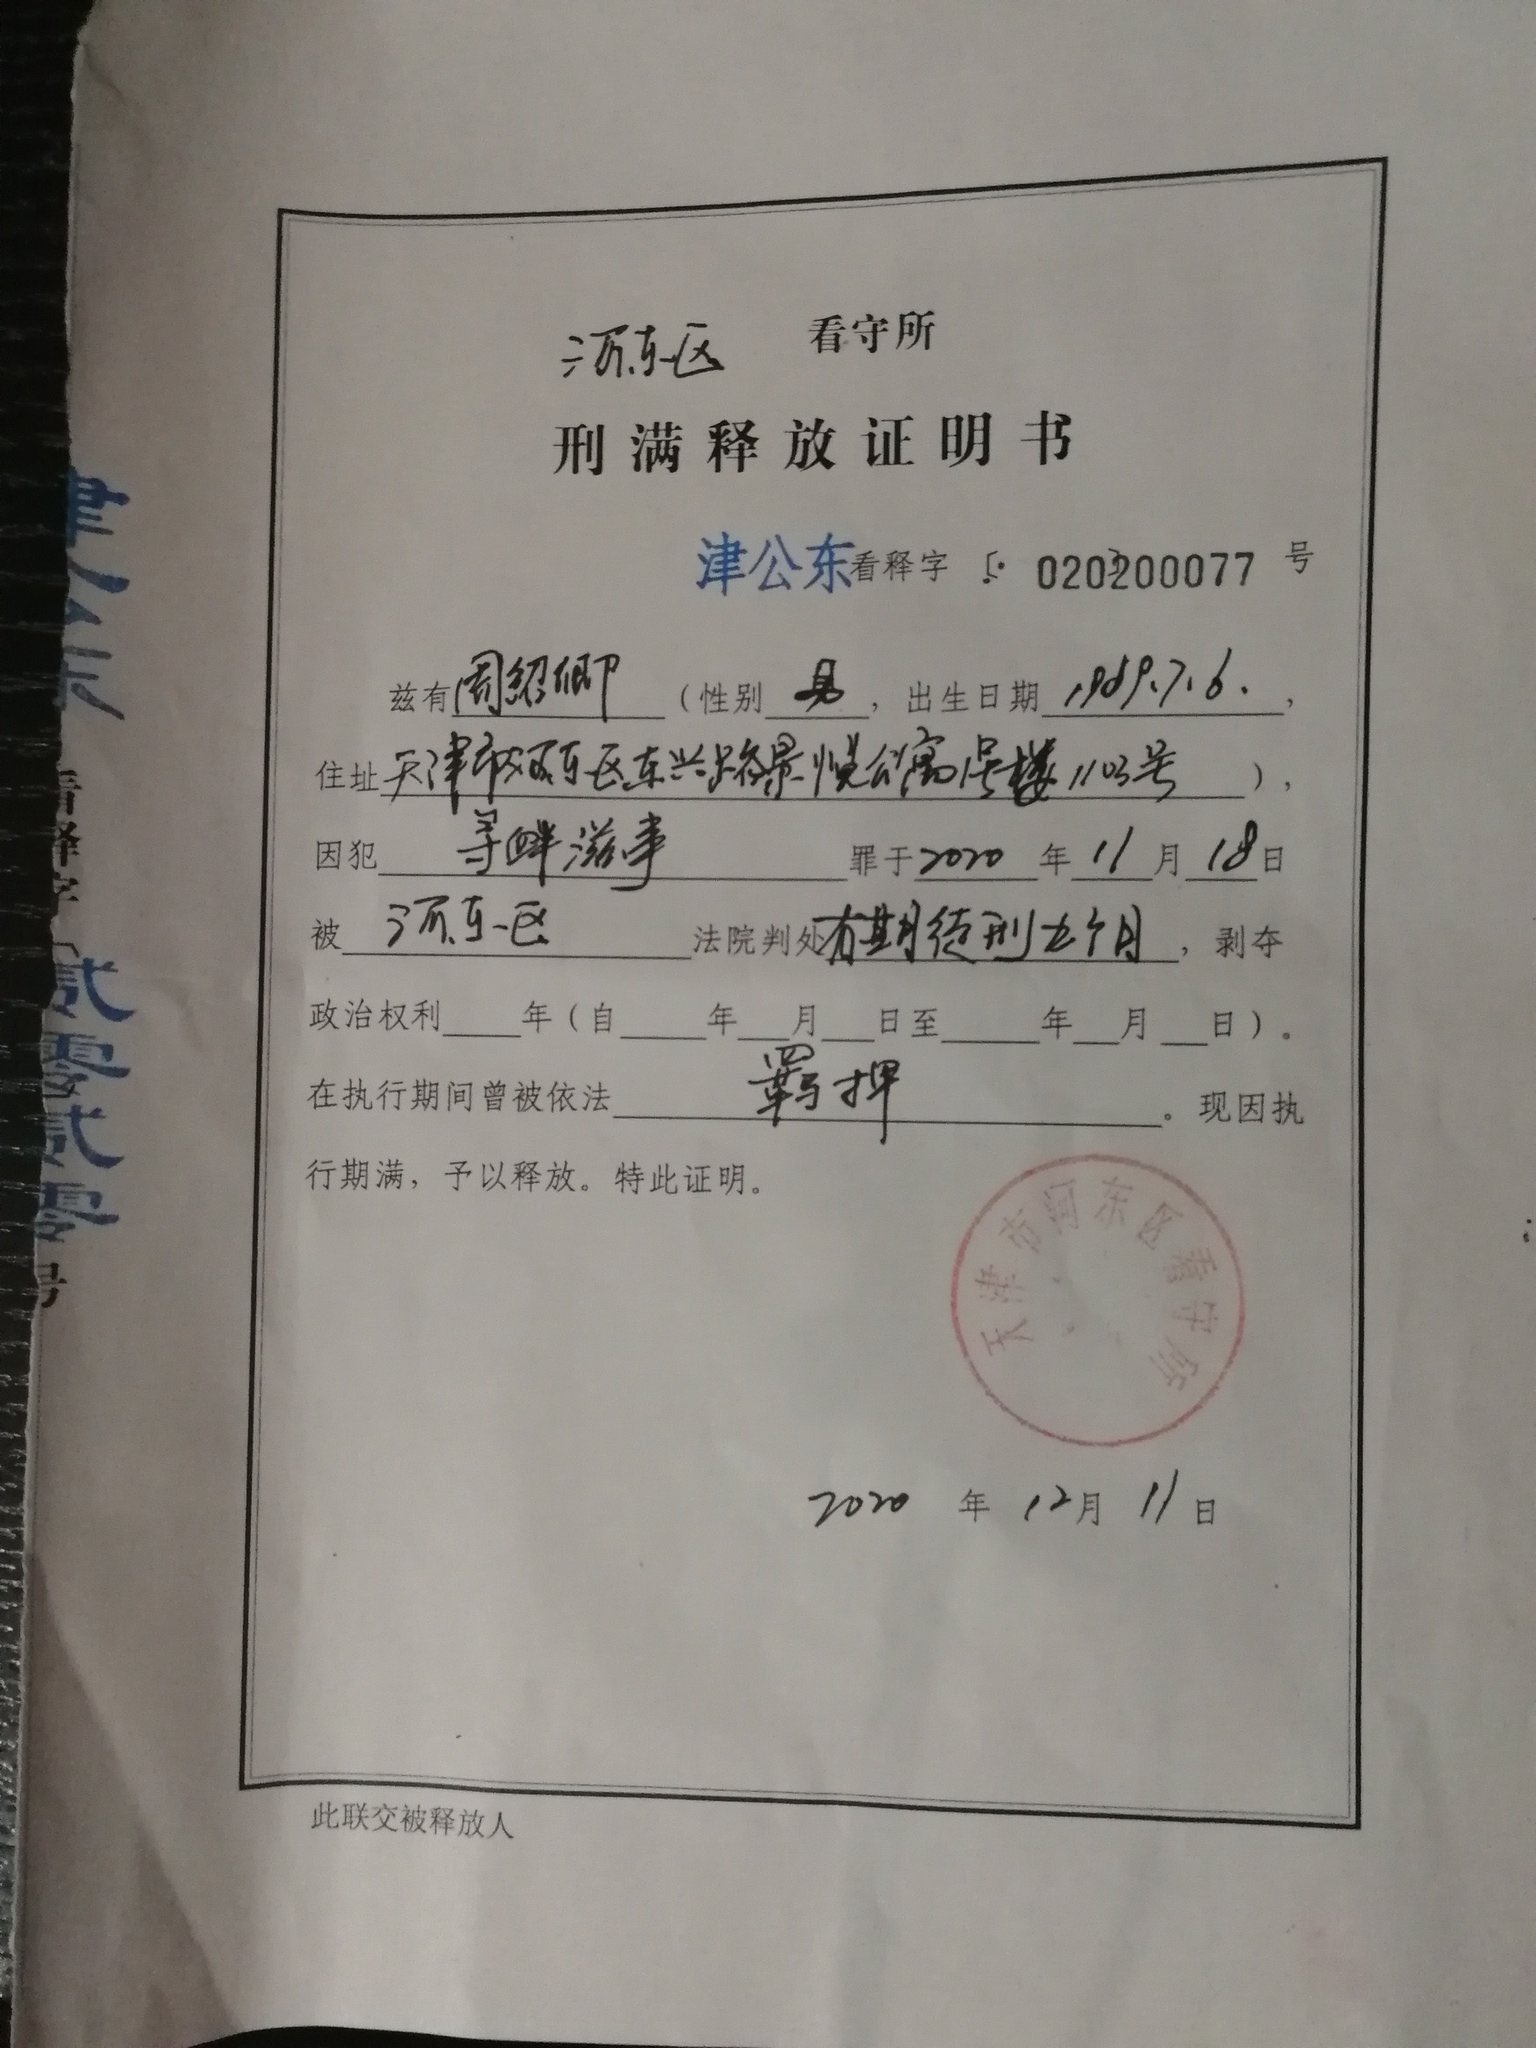 河东区 看守所
刑满释放证明书
津公东看释字〔 020200077 号
兹有周紹卿（性别男，出生日期1969.7.6.，
住址天津市河东区东兴路景悦公寓1号楼1103号），
因犯寻衅滋事罪于2020年11月18日
被河东区法院判处有期徒刑五个月，剥夺
政治权利____年（自____年__月__日至____年__月__日）。
在执行期间曾被依法羁押。现因执
行期满，予以释放。特此证明。
天津市河东区看守所
2020 年 12月 11日
此联交被释放人
津公东看释字〔贰零贰零号